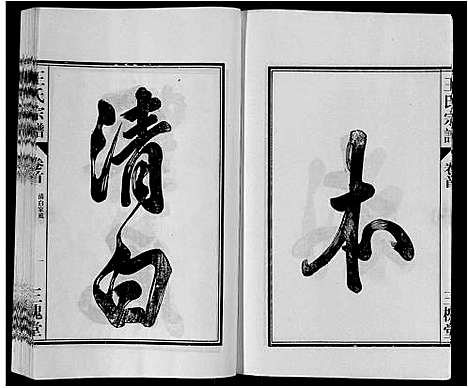 本
王氏宗譜
卷首
三槐堂
清白
王氏宗譜
卷首
清白家風
三槐堂